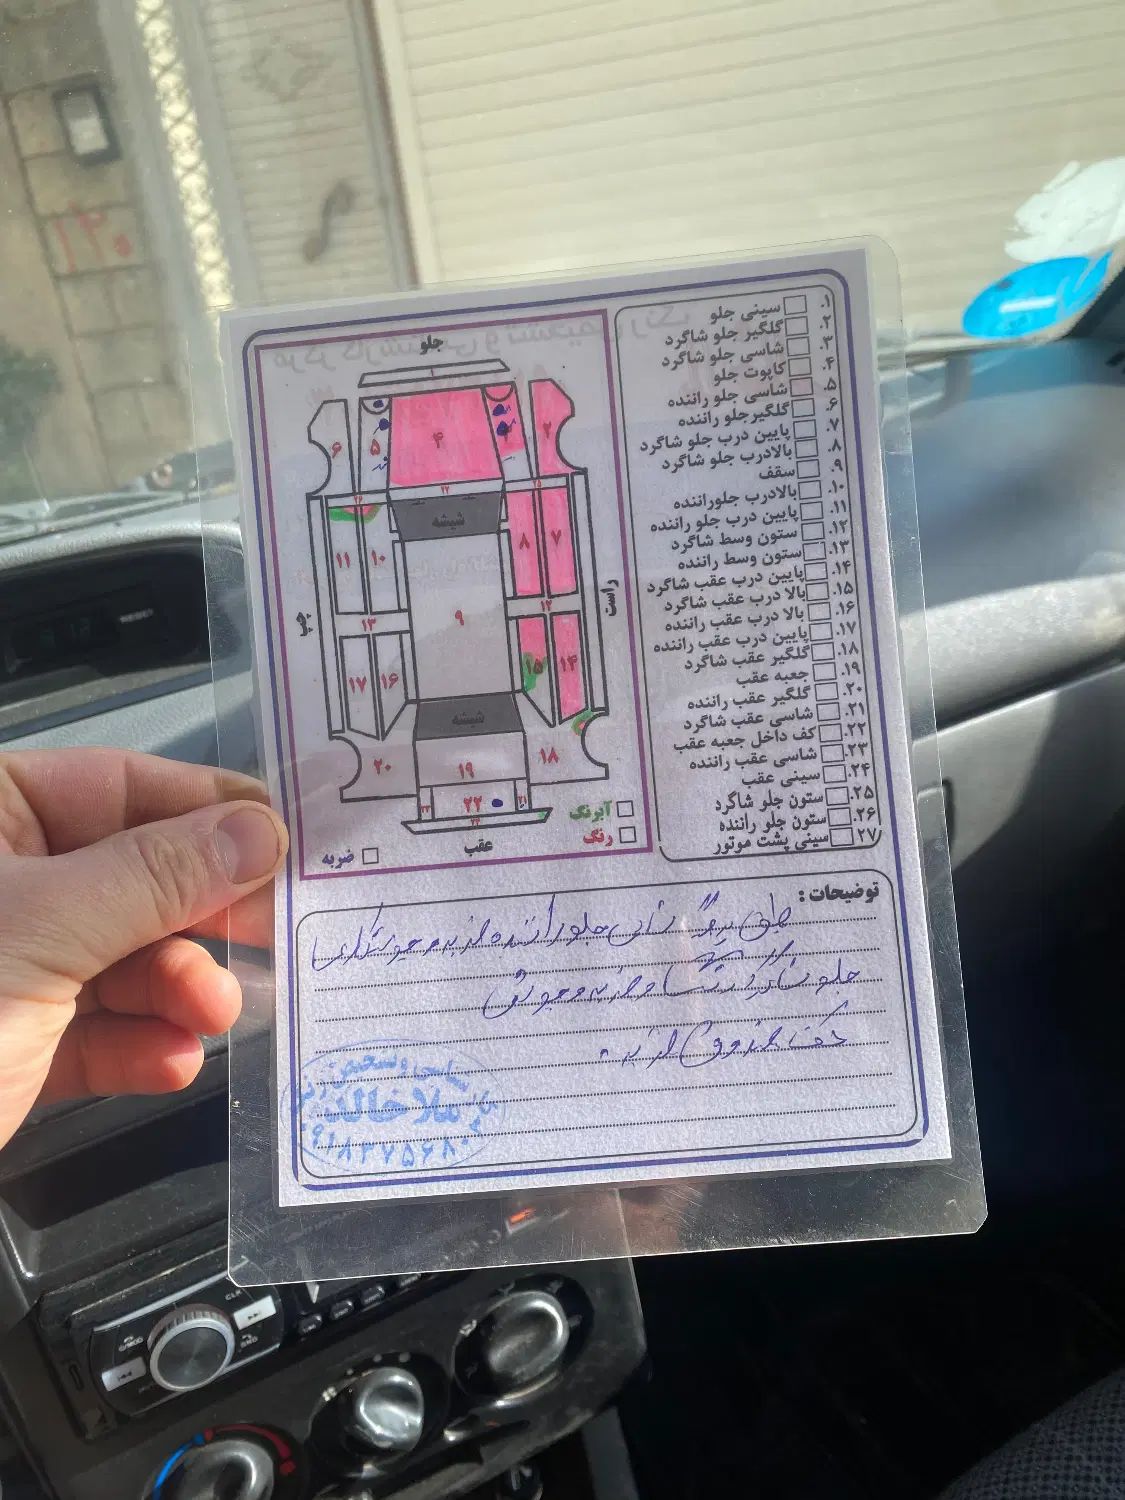 جلو
۱
۲
۳
۴
۵
۶
۷
۸
۹
۱۰
۱۱
۱۲
۱۳
۱۴
۱۵
۱۶
۱۷
۱۸
۱۹
۲۰
۲۲
شیشه
شیشه
راست
چپ
عقب
آبرنگ
رنگ
ضربه
۱. سینی جلو
۲. گلگیر جلو شاگرد
۳. شاسی جلو شاگرد
۴. کاپوت جلو
۵. شاسی جلو راننده
۶. گلگیرجلو راننده
۷. پایین درب جلو شاگرد
۸. بالادرب جلو شاگرد
۹. سقف
۱۰. بالادرب جلوراننده
۱۱. پایین درب جلو راننده
۱۲. ستون وسط شاگرد
۱۳. ستون وسط راننده
۱۴. پایین درب عقب شاگرد
۱۵. بالا درب عقب شاگرد
۱۶. بالا درب عقب راننده
۱۷. پایین درب عقب راننده
۱۸. گلگیر عقب شاگرد
۱۹. جعبه عقب
۲۰. گلگیر عقب راننده
۲۱. شاسی عقب شاگرد
۲۲. کف داخل جعبه عقب
۲۳. شاسی عقب راننده
۲۴. سینی عقب
۲۵. ستون جلو شاگرد
۲۶. ستون جلو راننده
۲۷. سینی پشت موتور
توضیحات :
جلو راننده ضربه و
جلو شاگرد و ضربه و
کف صندوق ضربه
۱۳۰